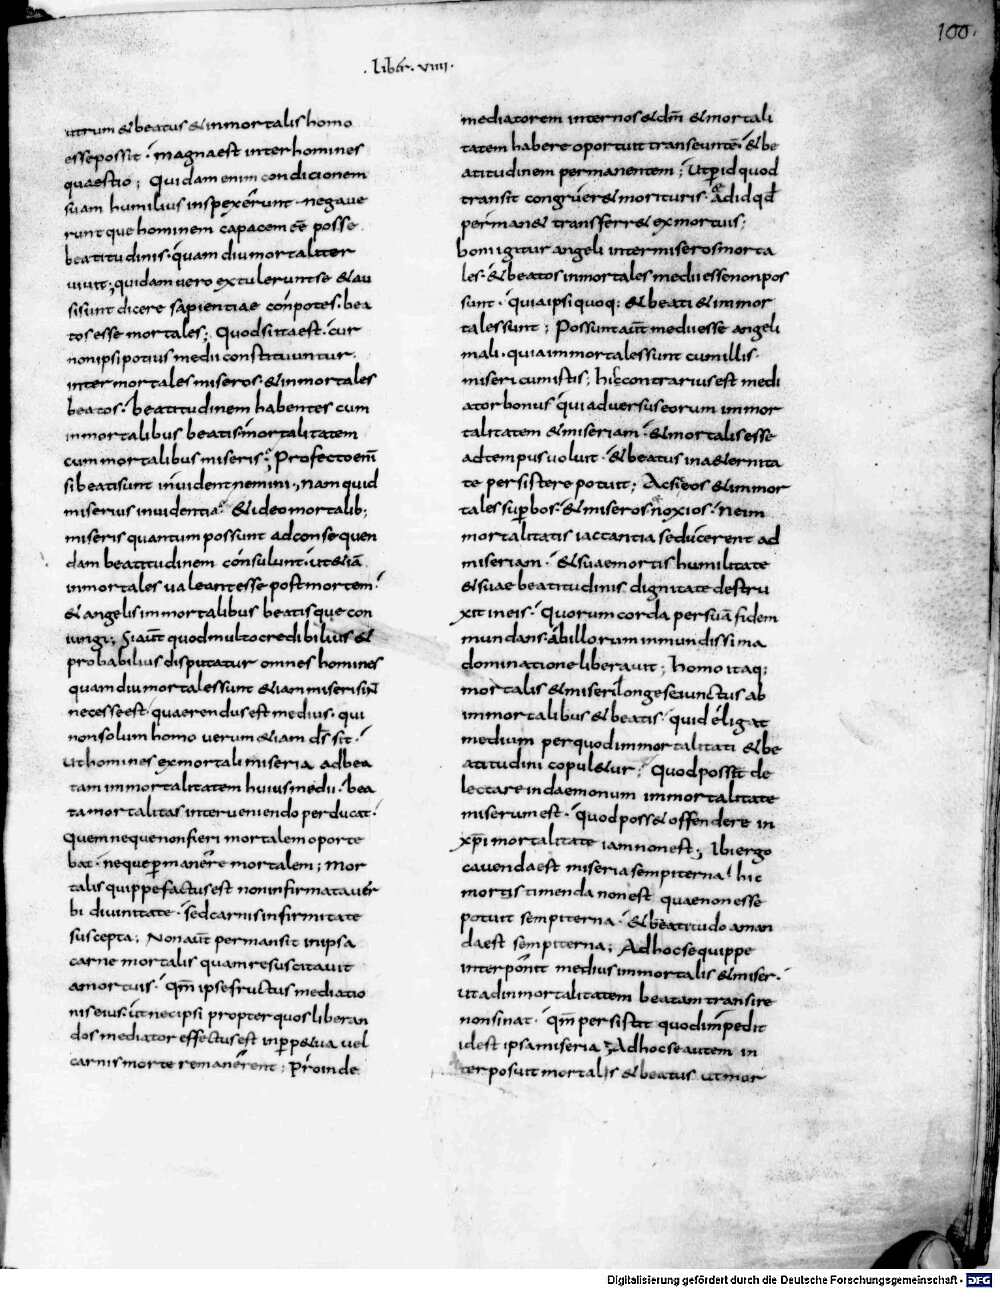 100.
. liber . viiii .
utrum & beatus & inmortalis homo
esse possit . magna est inter homines
quaestio ; Quidam enim condicionem
suam humilius inspexerunt . negave
runtque hominem capacem eē posse
beatitudinis . quamdiu mortaliter
vivit ; quidam vero extulerunt se & au
si sunt dicere sapientiae conpotes . bea
tos esse mortales ; Quod si ita est . cur
non ipsi potius medii constituuntur .
inter mortales miseros . & inmortales
beatos . beatitudinem habentes cum
inmortalibus beatis mortalitatem
cum mortalibus miseris ; Profecto enī
si beati sunt invident nemini ; nam quid
miserius invidentia . & ideo mortalib;
miseris quantum possunt ad consequen
dam beatitudinem consulunt . ut &iā
inmortales valeant esse post mortem .
& angelis inmortalibus beatisque con
iungi ; Si aut̄ quod multo credibilius &
probabilius disputatur omnes homines
quamdiu mortales sunt &iam miseri sint
necesse est . quaerendus est medius . qui
non solum homo verum &iam ds̄ sit .
Ut homines ex mortali miseria ad bea
tam inmortalitatem huius medii . bea
ta mortalitas interveniendo perducat .
Quem neque non fieri mortalem oporte
bat . neque permanere mortalem ; Mor
talis quippe factus est non infirmata ver
bi divinitate . sed carnis infirmitate
suscepta ; Non aut̄ permansit in ipsa
carne mortalis quam resuscitavit
a mortuis . Qm̄ ipse fructus mediatio
nis eius . ut nec ipsi propter quos liberan
dos mediator effectus est in perp&ua vel
carnis morte remanerent ; Proinde
mediatorem inter nos & dm̄ & mortali
tatem habere oportuit transeuntē . & be
atitudinem permanentem ; Ut per id quod
transit congruer& morituris . Ad id qd̄
perman& transferr& ex mortuis ;
boni igitur angeli inter miseros morta
les . & beatos inmortales medii esse non pos
sunt . quia ipsi quoq; & beati & inmor
tales sunt ; Possunt aut̄ medii esse angeli
mali . quia inmortales sunt cum illis .
miseri cum istis ; hic contrarius est medi
ator bonus qui adversus eorum inmor
talitatem & miseriam . & mortalis esse
ad tempus voluit . & beatus in a&ernita
te persistere potuit ; Ac si eos & inmor
tales superbos . & miseros noxios . ne im
mortalitatis iactantia seducerent ad
miseriam . & suae mortis humilitate
& suae beatitudinis dignitate destru
xit in eis . Quorum corda per suā fidem
mundans . ab illorum inmundissima
dominatione liberavit ; homo itaq;
mortalis & miser longe seiunctus ab
inmortalibus & beatis . quid eligat
medium per quod inmortalitati & be
atitudini copul&ur . Quod possit de
lectare in daemonum inmortalitate
miserum est . quod poss& offendere in
xp̄i mortalitate iam non est ; Ibi ergo
cavenda est miseria sempiterna . hic
mortis timenda non est quae non esse
potuit sempiterna . & beatitudo aman
da est sempiterna ; Ad hoc se quippe
interponit medius inmortalis & miser .
Ut ad inmortalitatem beatam transire
non sinat . Qm̄ persistit quod impedit
id est ipsa miseria ; Ad hoc se autem in
terposuit mortalis & beatus ut mor
Digitalisierung gefördert durch die Deutsche Forschungsgemeinschaft - DFG